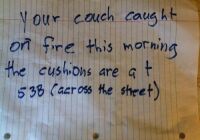 Your couch caught
on fire this morning
the cushions are at
538 (across the street)